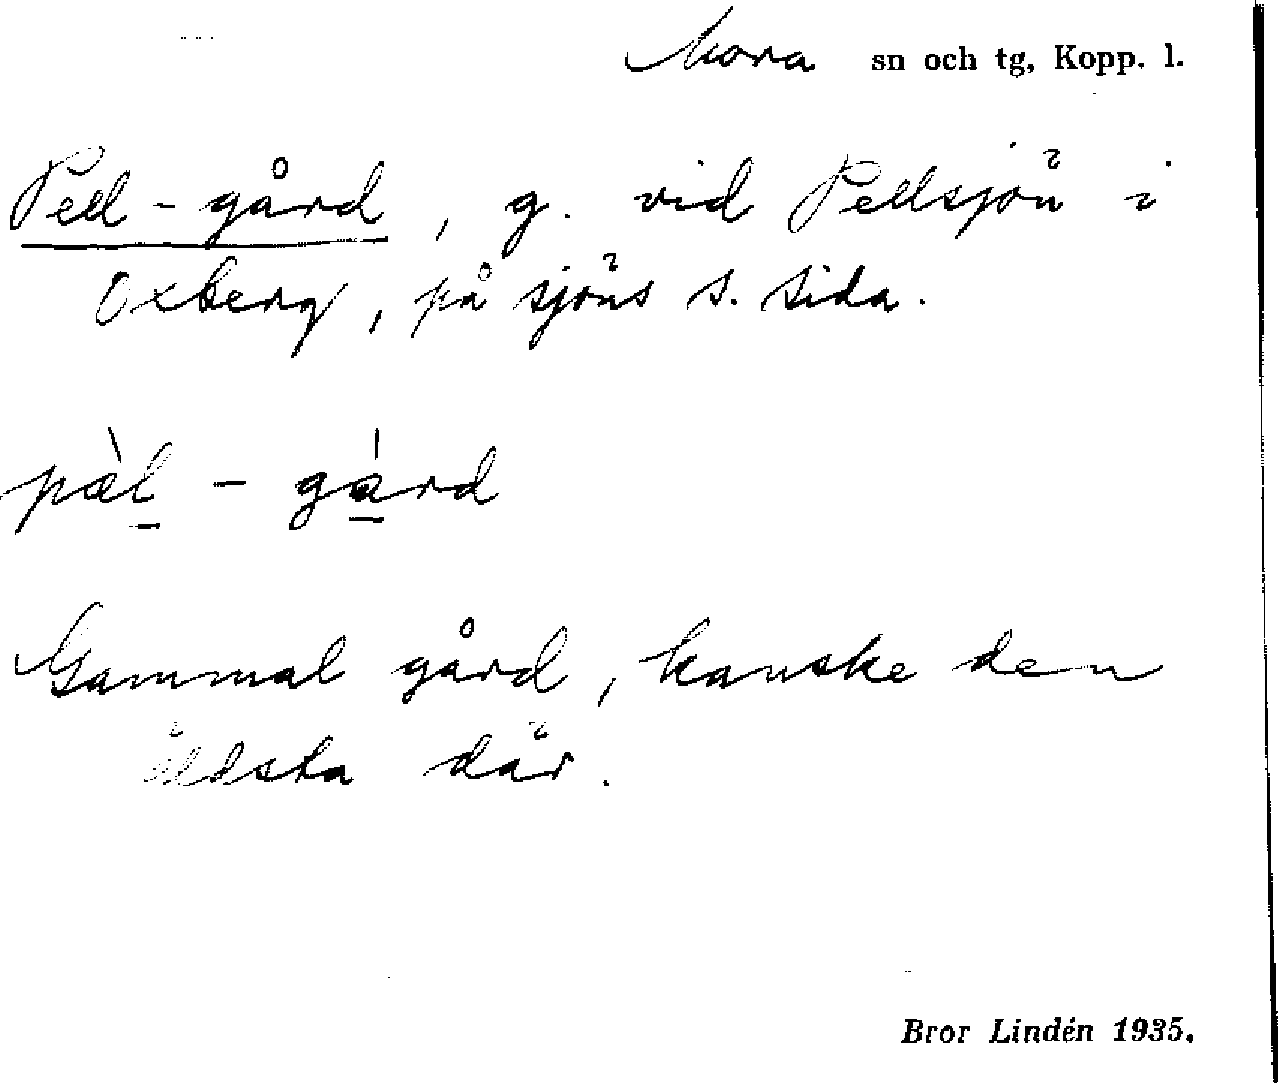 Mora sn och tg, Kopp. l.
Pell-gård, g. vid Pellsjön i
Oxberg, på sjöns s. sida.
pæ̀l - gárd
Gammal gård, kanske den
äldsta där.
Bror Lindén 1935.